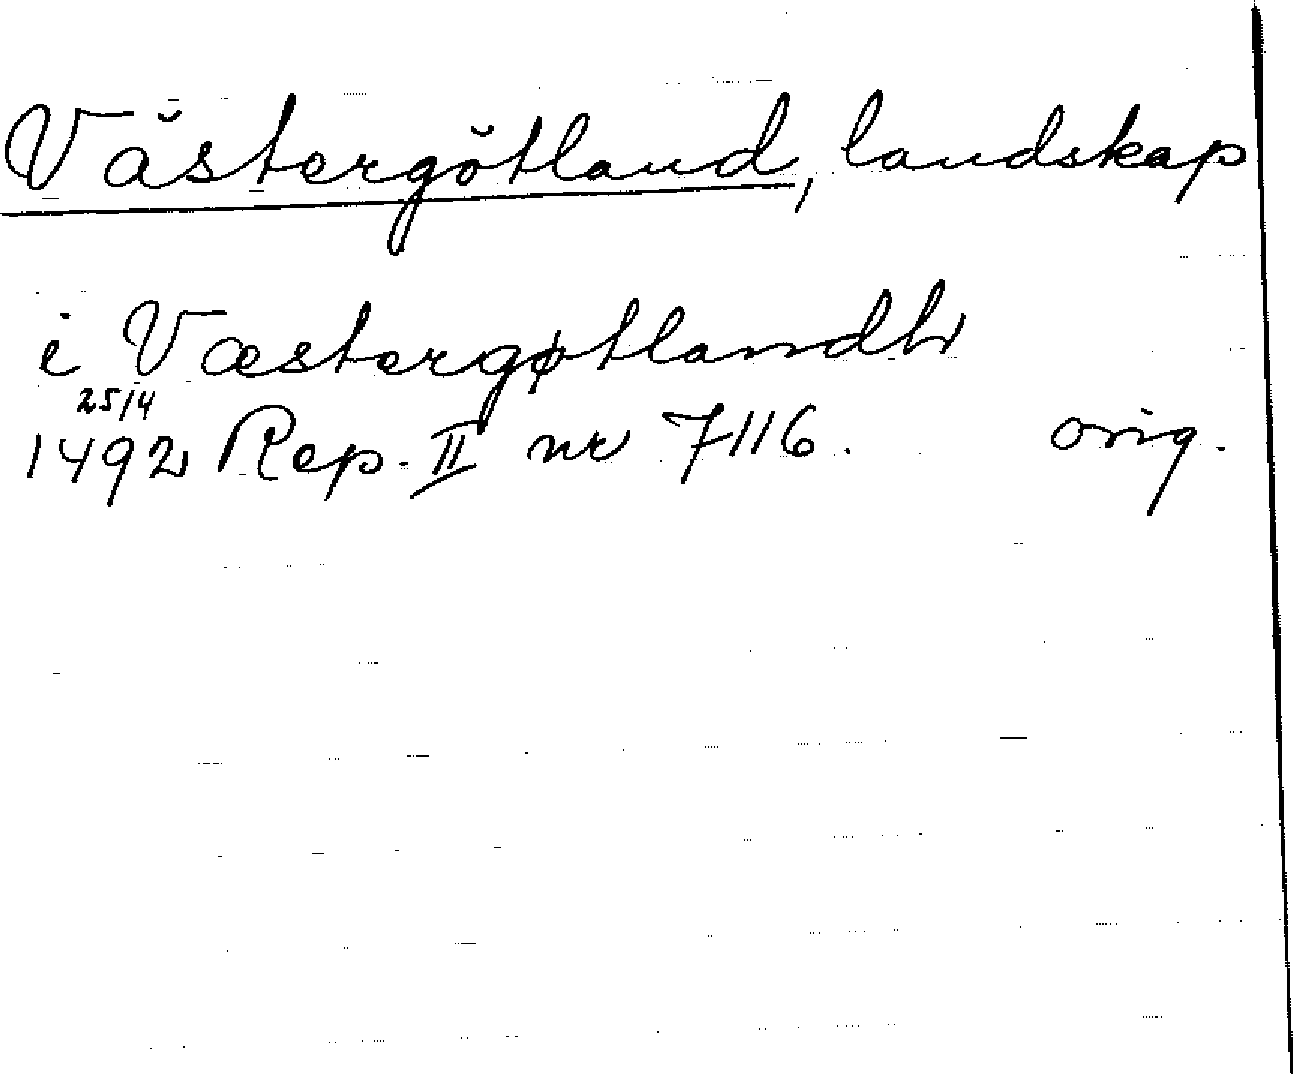 Västergötland, landskap
i Væstergøtlandh
25/4
1492 Rep. II nr 7116. orig.